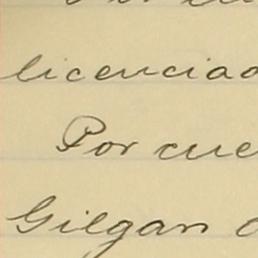 licenciad
Por cue
Gilgan